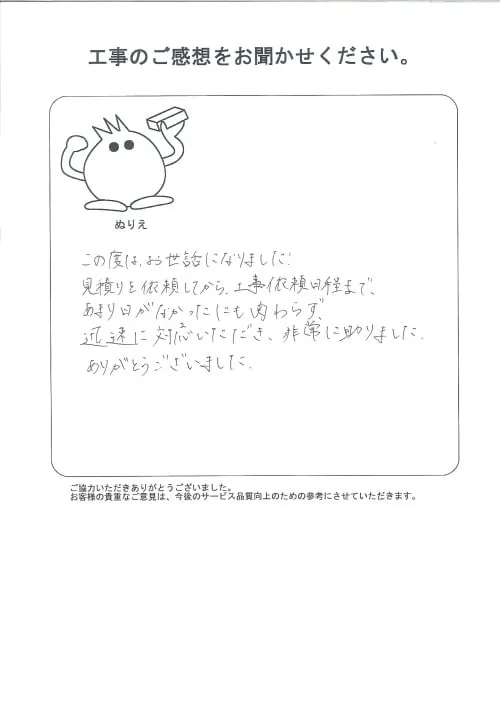 工事のご感想をお聞かせください。
ぬりえ
この度は、お世話になりました!
見積りを依頼してから、工事依頼日程まで、
あまり日がなかったにも関わらず、
迅速に対応いただき、非常に助りました。
ありがとうございました。
ご協力いただきありがとうございました。
お客様の貴重なご意見は、今後のサービス品質向上のための参考にさせていただきます。